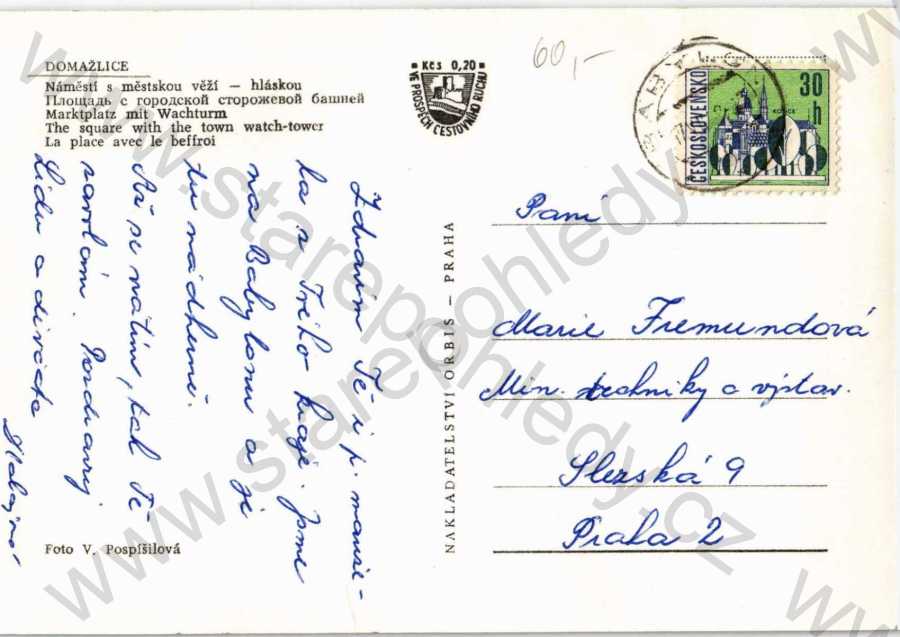 DOMAŽLICE
Náměstí s městskou věží — hláskou
Площадь с городской сторожевой башней
Marktplatz mit Wachturm
The square with the town watch-tower
La place avec le beffroi
Kčs 0,20
VE PROSPĚCH CESTOVNÍHO RUCHU
60,-
ČESKOSLOVENSKO
30
h
KOŠICE
Zdravím Tě i p. manže-
la z Tvého kraje. Jsme
na Babylonu a je
tu nádherně.
Až se vrátím, tak Tě
zavolám. Pozdravuj
Lídu a děvčata
NAKLADATELSTVÍ ORBIS — PRAHA
Paní
Marie Fremundová
Min. techniky a výstav.
Slezská 9
Praha 2
Foto V. Pospíšilová
www.starepohledy.cz